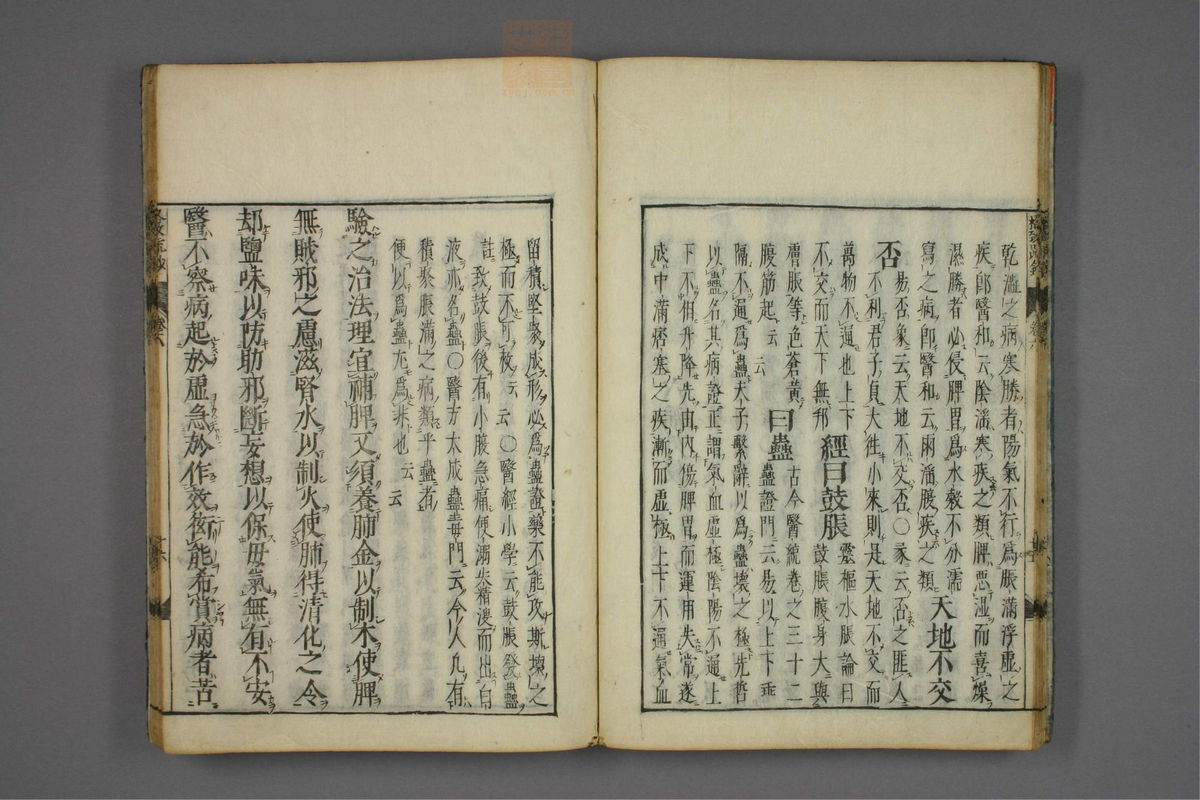 乾溫之病寒勝者陽氣不行爲脹滿浮虛之
疾卽醫和云陰淫寒疾之類脾惡濕而喜燥
濕勝者必侵脾胃爲水穀不分濡
寫之病卽醫和云雨淫腹疾之類天地不交
否易否象云天地不交否○彖云否之匪人
不利君子貞大往小來則是天地不交而
萬物不通也上下
不交而天下無邦經曰鼓脹靈樞水脹論曰
鼓脹腹身大與
膚脹等色蒼黃
腹筋起云云曰蠱古今醫統卷之三十二
蠱證門云易以上下乖
隔不通爲蠱夫子繫辭以爲蠱壞之極先哲
以蠱名其病證正謂氣血虛極陰陽不運上
下不相升降先由內傷脾胃而運用失常遂
成中滿痞塞之疾漸而虛極上下不通氣血
留積堅聚成形必爲蠱證藥不能攻斯壞之
極而不可救云云○醫經小學云鼓脹發蠱
註致鼓脹後有小腹急痛便溺失精溲而出白
液亦名蠱○醫方大成蠱毒門云今人凡有
積聚脹滿之病類乎蠱者
便以爲蠱尤爲非也云云
驗之治法理宜補脾又須養肺金以制木使脾
無賊邪之慮滋腎水以制火使肺得清化之令
却鹽味以防助邪斷妄想以保母氣無有不安
醫不察病起於虛急於作效衒能希賞病者苦